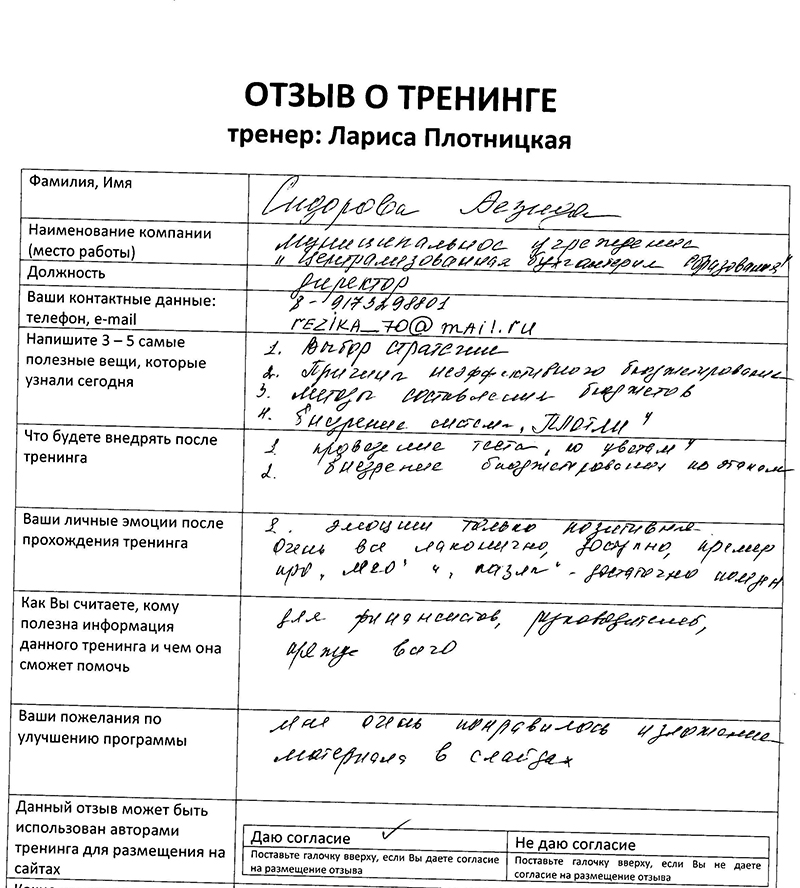 ОТЗЫВ О ТРЕНИНГЕ
тренер: Лариса Плотницкая
Фамилия, Имя
Сидорова
Наименование компании
(место работы)
Муниципальное учреждение
"Централизованная бухгалтерия образования"
Должность
директор
Ваши контактные данные:
телефон, e-mail
8-9173298801
rEZiKA_70@mail.ru
Напишите 3 – 5 самые
полезные вещи, которые
узнали сегодня
1. Выбор стратегии
2. Причины неэффективного бюджетирования
3. Методы составления бюджетов
4. Внедрение системы
Что будете внедрять после
тренинга
1. проведение теста „по цветам"
2. внедрение бюджетирования по этапам
Ваши личные эмоции после
прохождения тренинга
1. эмоции только позитивные
Очень все лаконично, доступно, пример
про „пазлы" - достаточно
Как Вы считаете, кому
полезна информация
данного тренинга и чем она
сможет помочь
для финансистов, руководителей,
прежде всего
Ваши пожелания по
улучшению программы
мне очень понравилось изложение
материала в слайдах
Данный отзыв может быть
использован авторами
тренинга для размещения на
сайтах
Даю согласие ✓
Поставьте галочку вверху, если Вы даете согласие
на размещение отзыва
Не даю согласие
Поставьте галочку вверху, если Вы не даете
согласие на размещение отзыва